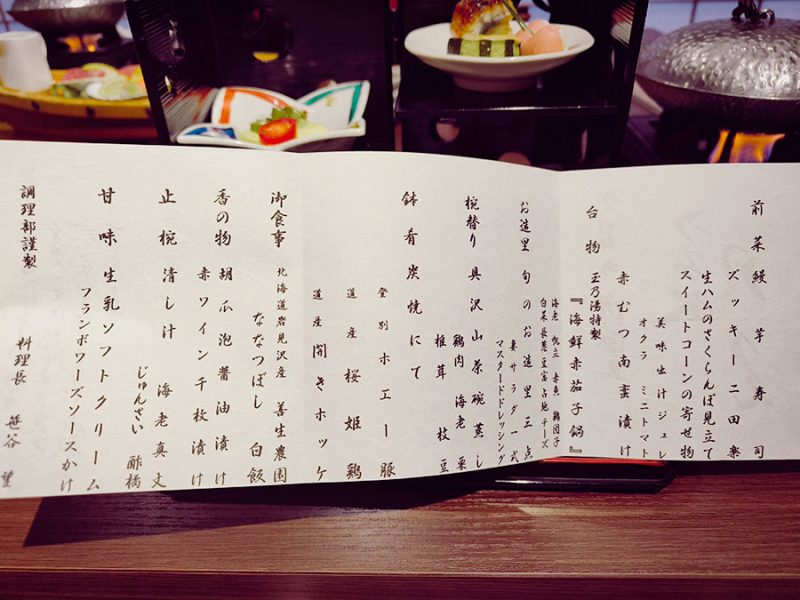 前菜 鰻芋寿司
ズッキーニ田楽
生ハムのさくらんぼ見立て
スイートコーンの寄せ物
美味出汁ジュレ
オクラ ミニトマト
赤むつ南蛮漬け
台物 玉乃湯特製
『海鮮赤茄子鍋』
海老 帆立 赤魚 鶏団子
白菜 長葱 豆富 占地 チーズ
お造里 旬のお造里三点
妻サラダ一式
マスタードドレッシング
椀替り 具沢山茶碗蒸し
鶏肉 海老 栗
椎茸 枝豆
鉢肴 炭焼にて
登別ホエー豚
道産桜姫鶏
道産開きホッケ
御食事 北海道岩見沢産 善生農園
ななつぼし 白飯
香の物 胡瓜泡醤油漬け
赤ワイン千枚漬け
止椀 清し汁 海老真丈
じゅんさい 酢橘
甘味 生乳ソフトクリーム
フランボワーズソースかけ
調理部謹製
料理長 笹谷 望